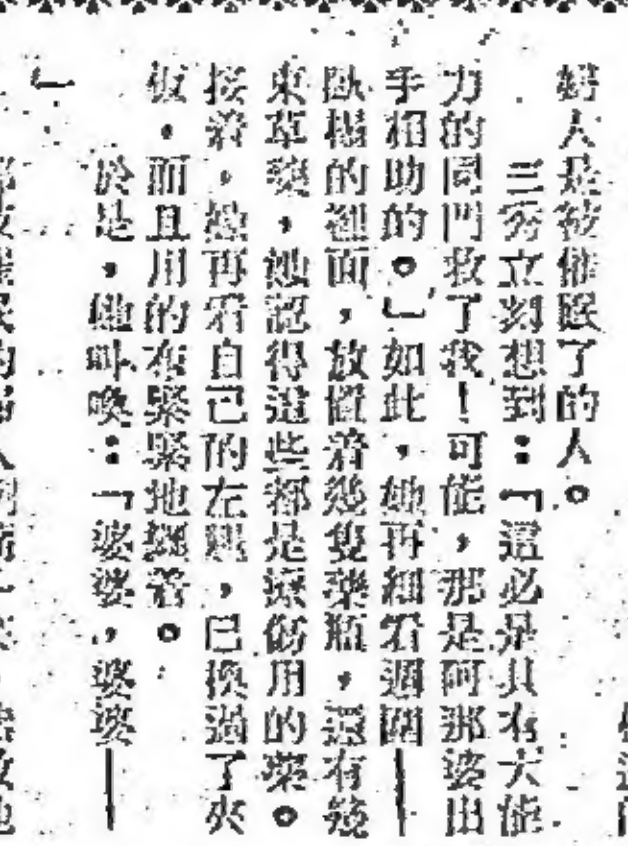 婦人是被催眠了的人。
三秀立刻想到:「這必是具有大能
力的同門救了我!可能,那是阿那婆出
手相助的。」如此,她再細看週圍——
臥榻的裡面,放置着幾隻藥瓶,還有幾
束草藥,她認得這些都是療傷用的藥。
接着,她再看自己的左腿,已換過了夾
板,而且用的布緊緊地綑着。
於是,她叫喚:「婆婆,婆婆——
」